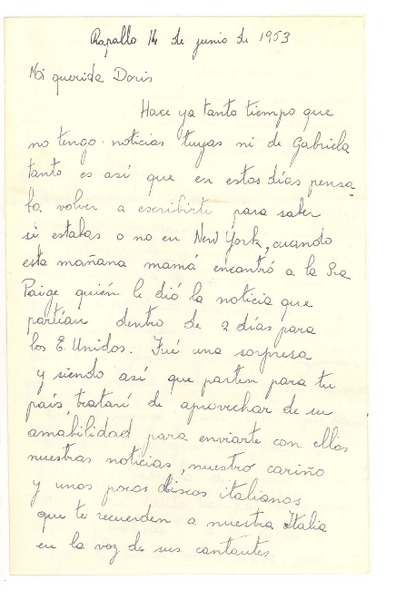 Rapallo 14 de junio de 1953
Mi querida Doris
Hace ya tanto tiempo que
no tengo noticias tuyas ni de Gabriela
tanto es así que en estos días pensa-
ba volver a escribirte para saber
si estabas o no en New York, cuando
esta mañana mamá encontró a la Sra
Paige quién le dió la noticia que
partían dentro de 2 días para
los E. Unidos. Fué una sorpresa
y siendo así que parten para tu
país, trataré de aprovechar de su
amabilidad para enviarte con ellos
nuestras noticias, nuestro cariño
y unos pocos discos italianos
que te recuerden a nuestra Italia
en la voz de sus cantantes